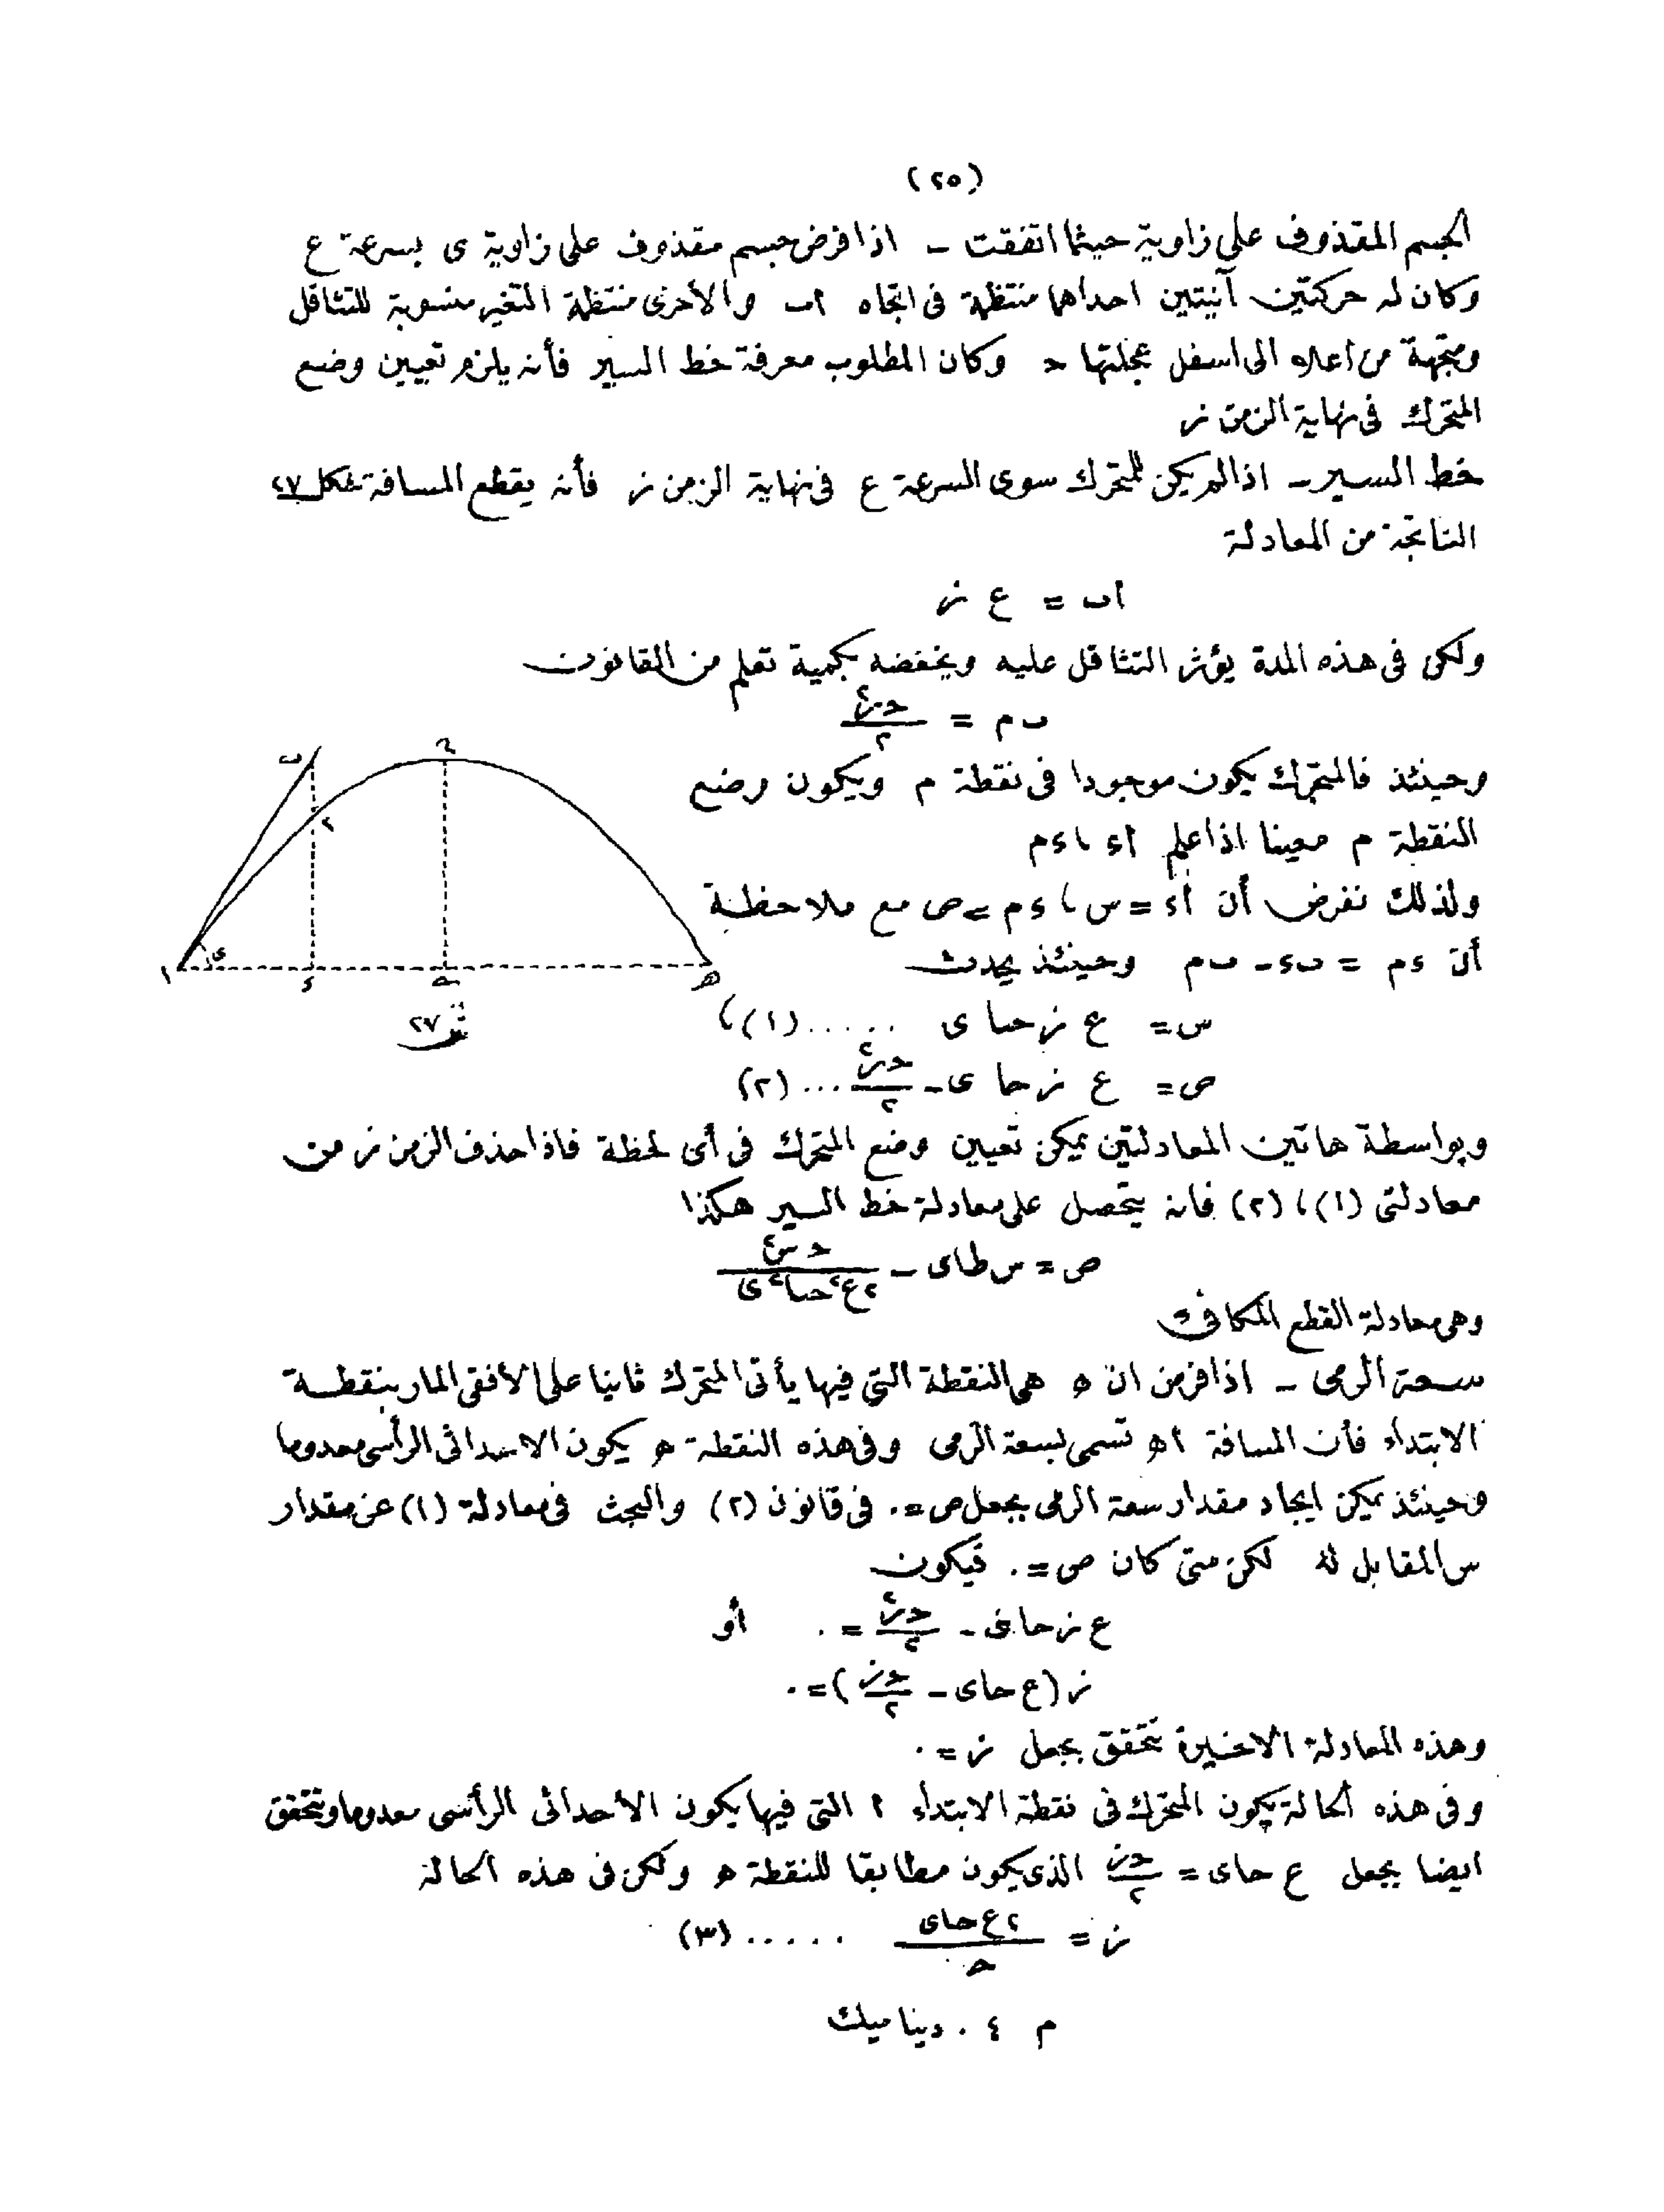 (٢٥)
الجسم المقذوف على زاوية حيثما اتفقت ـ اذا فرض جسم مقذوف على زاوية ى بسرعة ع
وكان له حركتين آنيتين احداهما منتظمة فى اتجاه اب والأخرى منتظمة التغير منسوبة للتثاقل
ومتجهة من أعلاه الى اسفل عجلتها حـ وكان المطلوب معرفة خط السير فأنه يلزم تعيين وضع
المتحرك فى نهاية الزمن ز
خط السير ـ اذا لم يكن للمتحرك سوى السرعة ع فى نهاية الزمن ز فأنه يقطع المسافة شكل ٢٧
الناتجة من المعادلة
اب = ع ز
ولكن فى هذه المدة يؤثر التثاقل عليه ويخفضه بكمية تعلم من القانون
ب م = حـ ز٢ / ٢
وحينئذ فالمتحرك يكون موجودا فى نقطة م ويكون وضع
النقطة م معينا اذا علم اء ، ءم
ولذلك نفرض أن اء = س ، ءم = ص مع ملاحظة
أن ءم = بء ـ بم وحينئذ يحدث
س = ع ز حتا ى ..... (١) ،
ص = ع ز حا ى ـ حـ ز٢ / ٢ ... (٢)
ب
م
ى
ا
ء
هـ
شكل ٢٧
وبواسطة هاتين المعادلتين يمكن تعيين وضع المتحرك فى أى لحظة فاذا حذف الزمن ز من
معادلتى (١) ، (٢) فانه يتحصل على معادلة خط السير هكذا
ص = س طاى ـ حـ س٢ / ٢ع٢ حتا٢ ى
وهى معادلة القطع المكافىء
سعة الرمى ـ اذا فرض ان هـ هى النقطة التى فيها يأتى المتحرك ثانيا على الأفقى المار بنقطة
الابتداء فأن المسافة اهـ تسمى بسعة الرمى وفى هذه النقطة هـ يكون الاحداثى الرأسى معدوما
وحينئذ يمكن ايجاد مقدار سعة الرمى بجعل ص = ٠ فى قانون (٢) والبحث فى معادلة (١) عن مقدار
س المقابل له لكن متى كان ص = ٠ فيكون
ع ز حاى ـ حـ ز٢ / ٢ = ٠ أو
ز (ع حاى ـ حـ ز / ٢) = ٠
وهذه المعادلة الاخيرة تتحقق بجعل ز = ٠
وفى هذه الحالة يكون المتحرك فى نقطة الابتداء ا التى فيها يكون الأحداثى الرأسى معدوما وتتحقق
ايضا بجعل ع حاى = حـ ز / ٢ الذى يكون مطابقا للنقطة هـ ولكن فى هذه الحالة
ز = ٢ ع حاى / حـ ..... (٣)
م ٤ . ديناميك